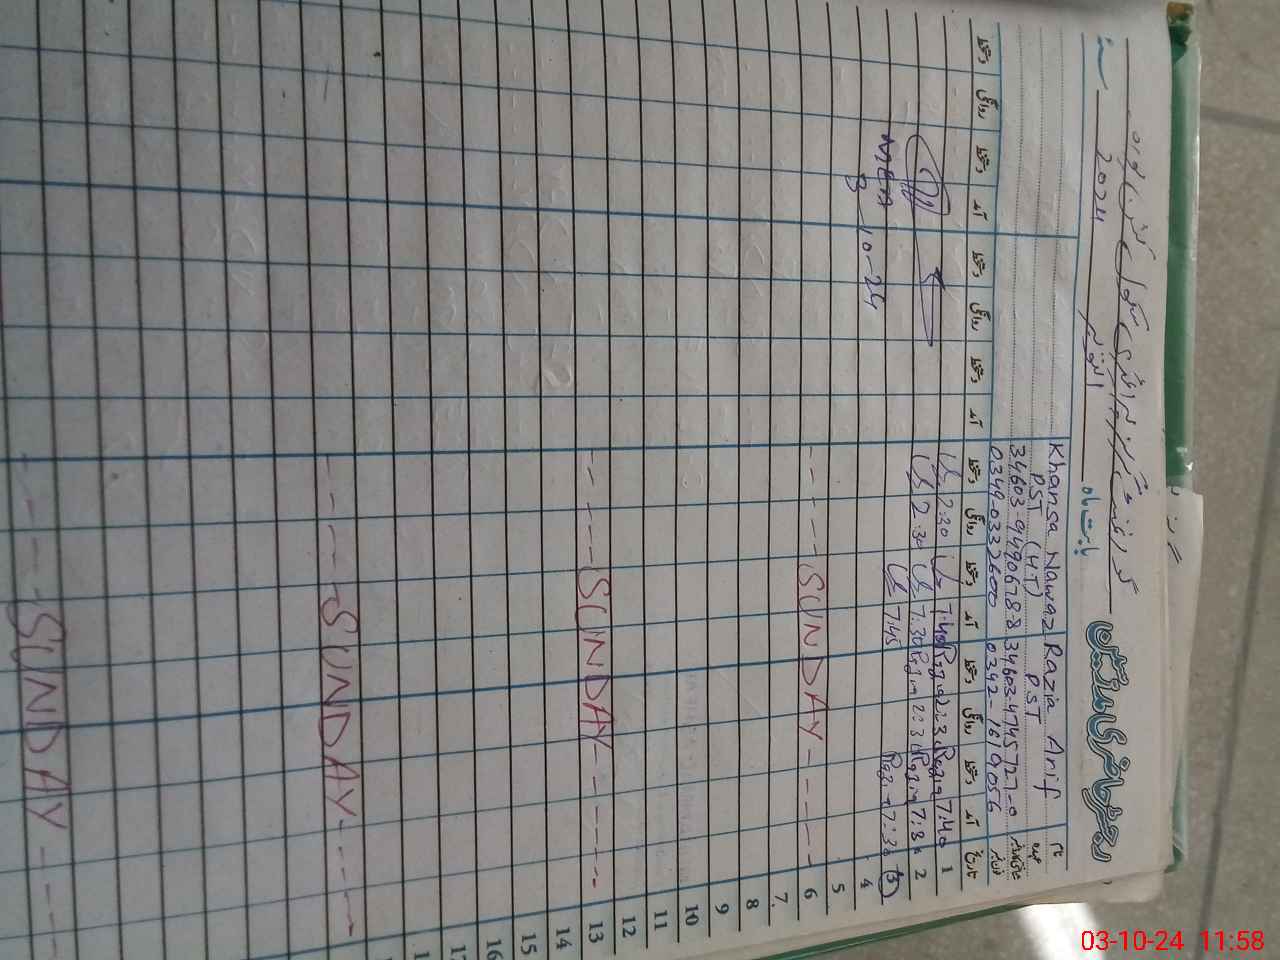 رجسٹر حاضری اساتذہ
بابت ماہ اکتوبر 2024
نام Razia Arif Khansa Nawaz
عہدہ PST PST (HT)
34603-4745727-0 34603-9490678-8
فون نمبر 0342-1619056 0349-0337600
تاریخ آمد دستخط روانگی دستخط آمد دستخط روانگی دستخط آمد دستخط روانگی دستخط آمد دستخط روانگی دستخط
1 7:40 Razia 2:30 Razia 7:40 2:30
2 7:30 Razia 2:30 Razia 7:30 2:30
3 7:30 Razia 7:45
MEA
3-10-24
4
5
6 SUNDAY
7
8
9
10
11
12
13 SUNDAY
14
15
16
17
SUNDAY
SUNDAY
03-10-24 11:58